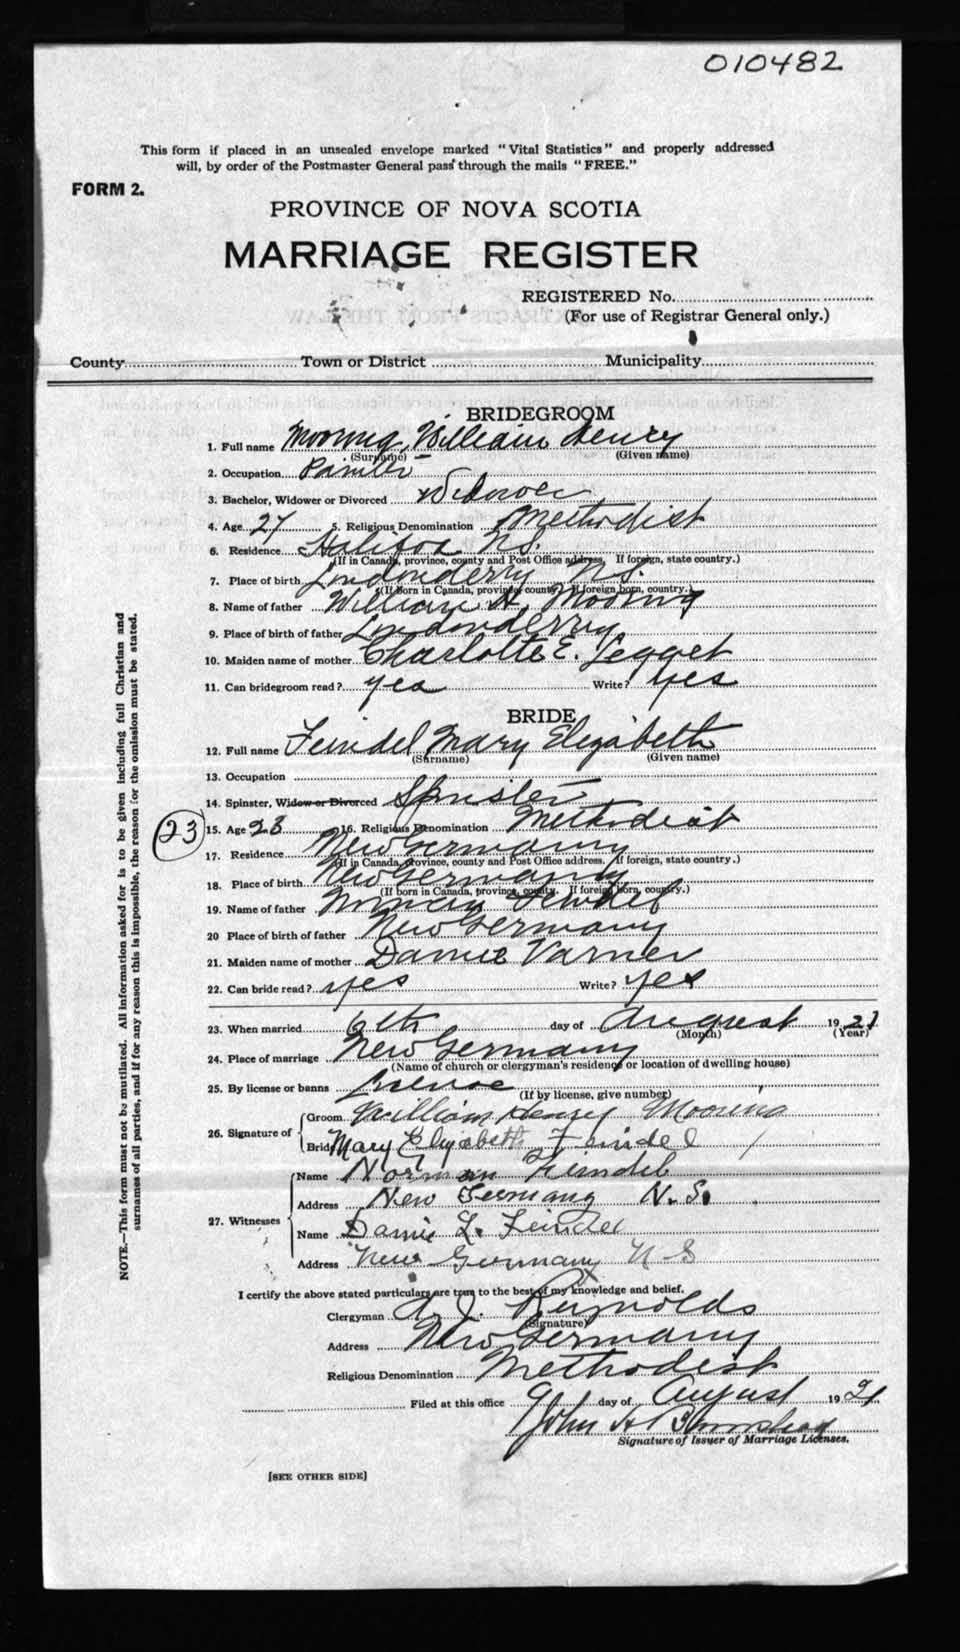 010482
This form if placed in an unsealed envelope marked "Vital Statistics" and properly addressed
will, by order of the Postmaster General pass through the mails "FREE."
FORM 2.
PROVINCE OF NOVA SCOTIA
MARRIAGE REGISTER
REGISTERED No.
(For use of Registrar General only.)
County Town or District Municipality
BRIDEGROOM
1. Full name Mooring, William Henry
(Surname) (Given name)
2. Occupation Painter
3. Bachelor, Widower or Divorced Widower
4. Age 27 5. Religious Denomination Methodist
6. Residence Halifax N.S.
(If in Canada, province, county and Post Office address. If foreign, state country.)
7. Place of birth Londonderry N.S.
(If born in Canada, province county. If foreign born, country.)
8. Name of father William H. Mooring
9. Place of birth of father Londonderry
10. Maiden name of mother Charlotte E. Legget
11. Can bridegroom read? yes Write? yes
BRIDE
12. Full name Feindel Mary Elizabeth
(Surname) (Given name)
13. Occupation
14. Spinster, Widow or Divorced Spinster
15. Age 23 16. Religious Denomination Methodist
23
17. Residence New Germany
(If in Canada, province, county and Post Office address. If foreign, state country.)
18. Place of birth New Germany
(If born in Canada, province, county. If foreign born, country.)
19. Name of father Feindel
20 Place of birth of father New Germany
21. Maiden name of mother Damie Varner
22. Can bride read? yes Write? yes
23. When married 6th day of August 1921
(Month) (Year)
24. Place of marriage New Germany
(Name of church or clergyman's residence or location of dwelling house)
25. By license or banns License
(If by license, give number)
26. Signature of Groom William Henry Mooring
Bride Mary Elizabeth Feindel
27. Witnesses
Name Norman Feindel
Address New Germany N.S.
Name Damie L. Feindel
Address New Germany N S
I certify the above stated particulars are true to the best of my knowledge and belief.
Clergyman A. J. Reynolds
(Signature)
Address New Germany
Religious Denomination Methodist
Filed at this office 9 day of August 1921
John H
Signature of Issuer of Marriage Licenses.
[SEE OTHER SIDE]
NOTE.—This form must not be mutilated. All information asked for is to be given including full Christian and
surnames of all parties, and if for any reason this is impossible, the reason for the omission must be stated.